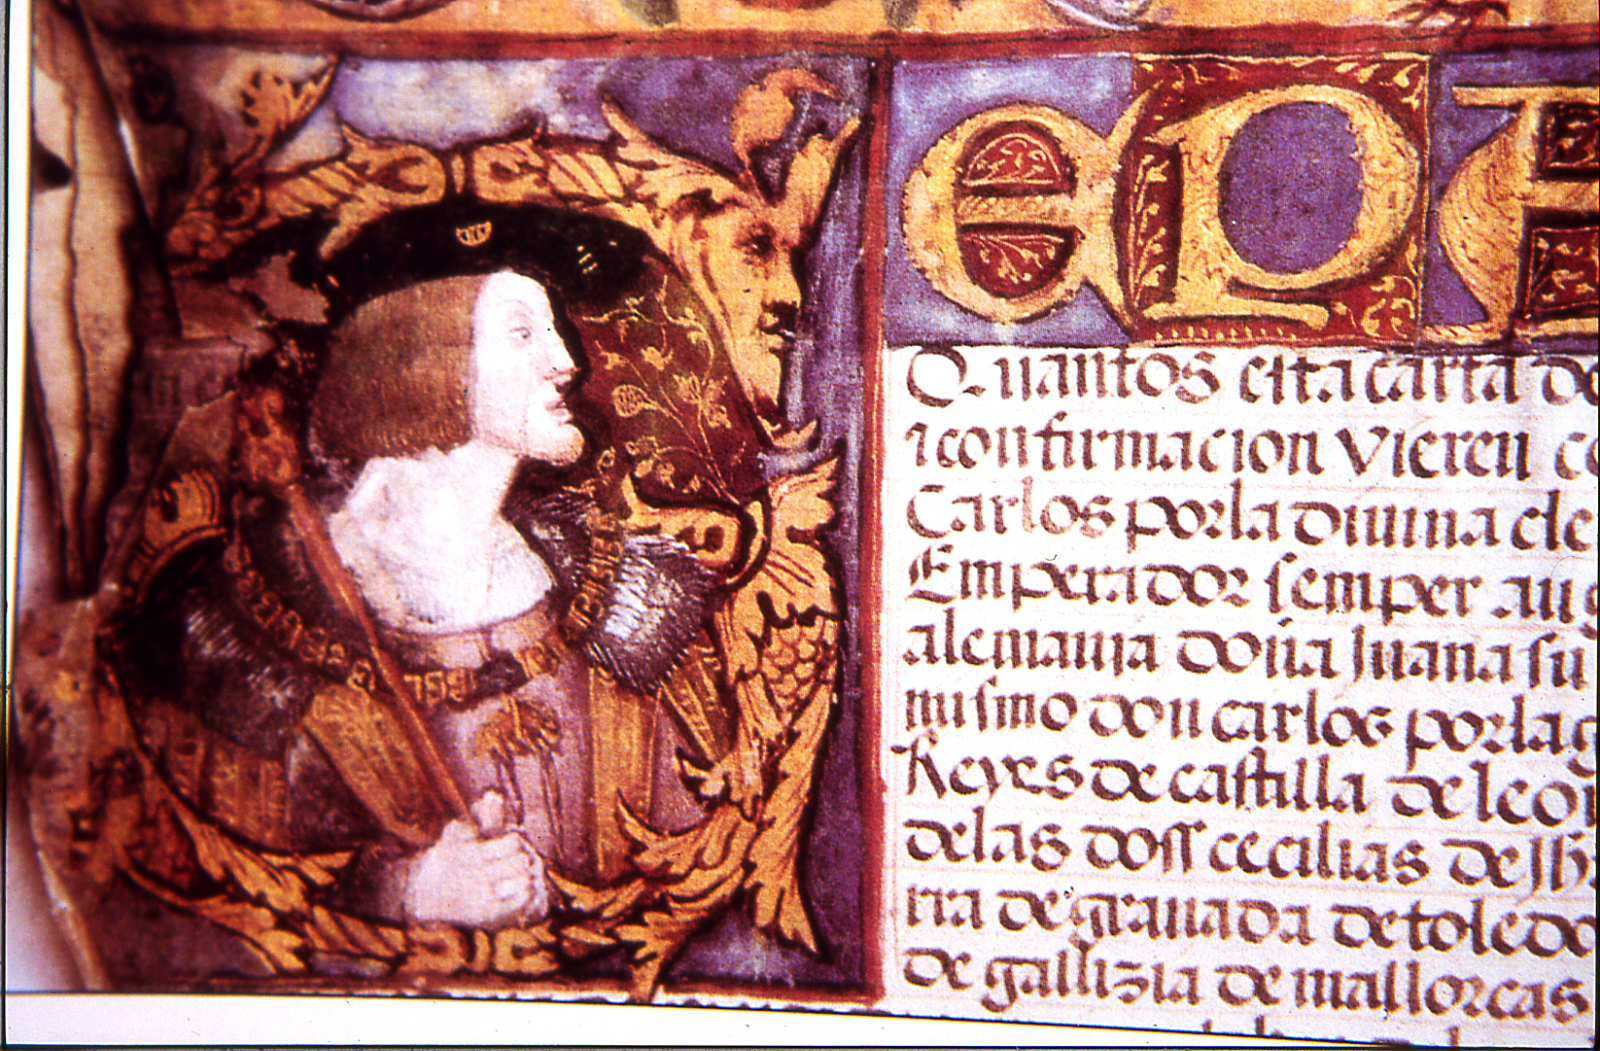 EPA
Quantos esta carta de
i confirmacion vieren
Carlos por la diuina cle
Emperador semper aug
alemania doña Juana su
mismo don carlos por la g
Reyes de castilla de leon
delas doss cecilias de Jh
rra de granada de toledo
de gallizia de mallorcas